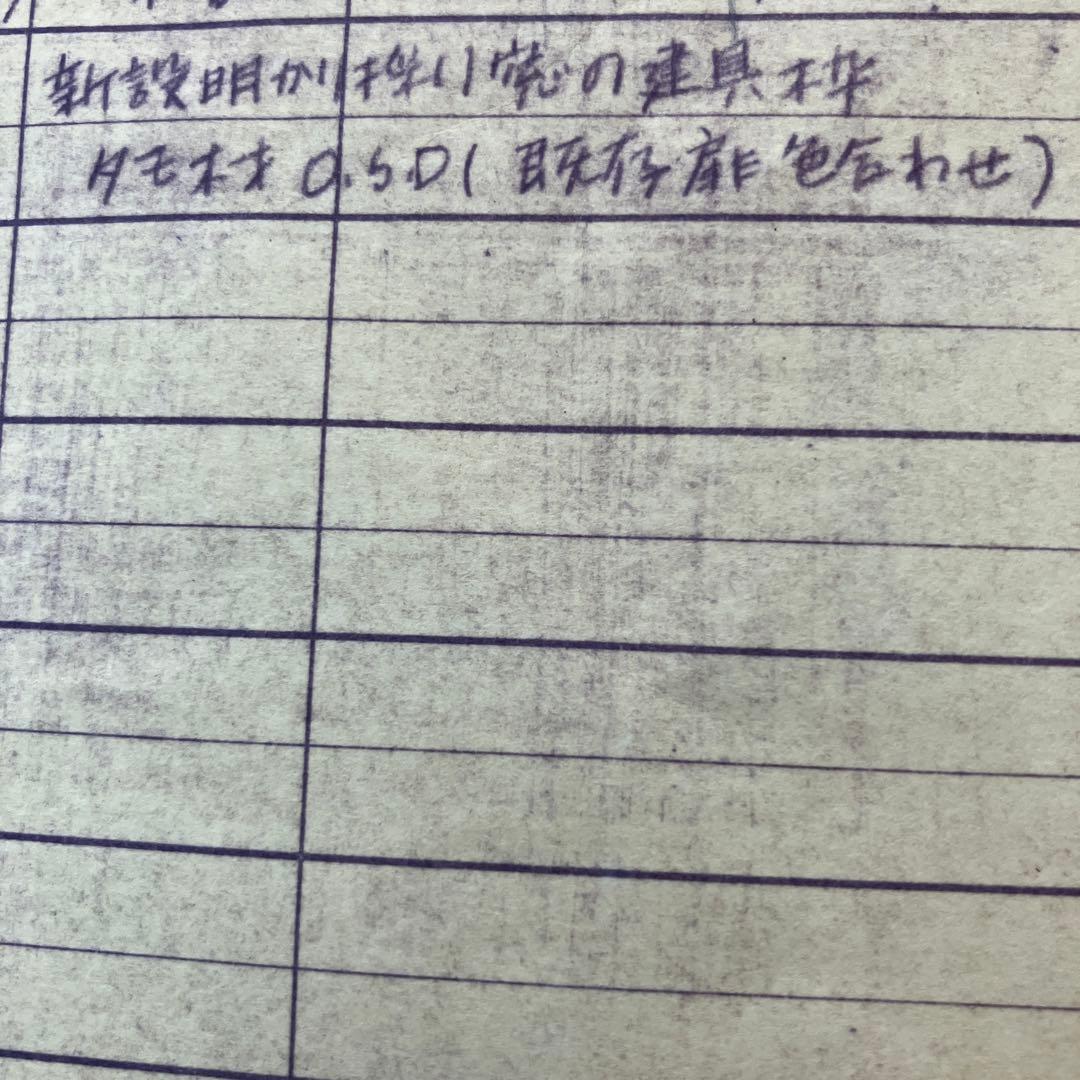 新設明かり採り窓の建具枠
タモ材 O.S.D(既存扉色合わせ)